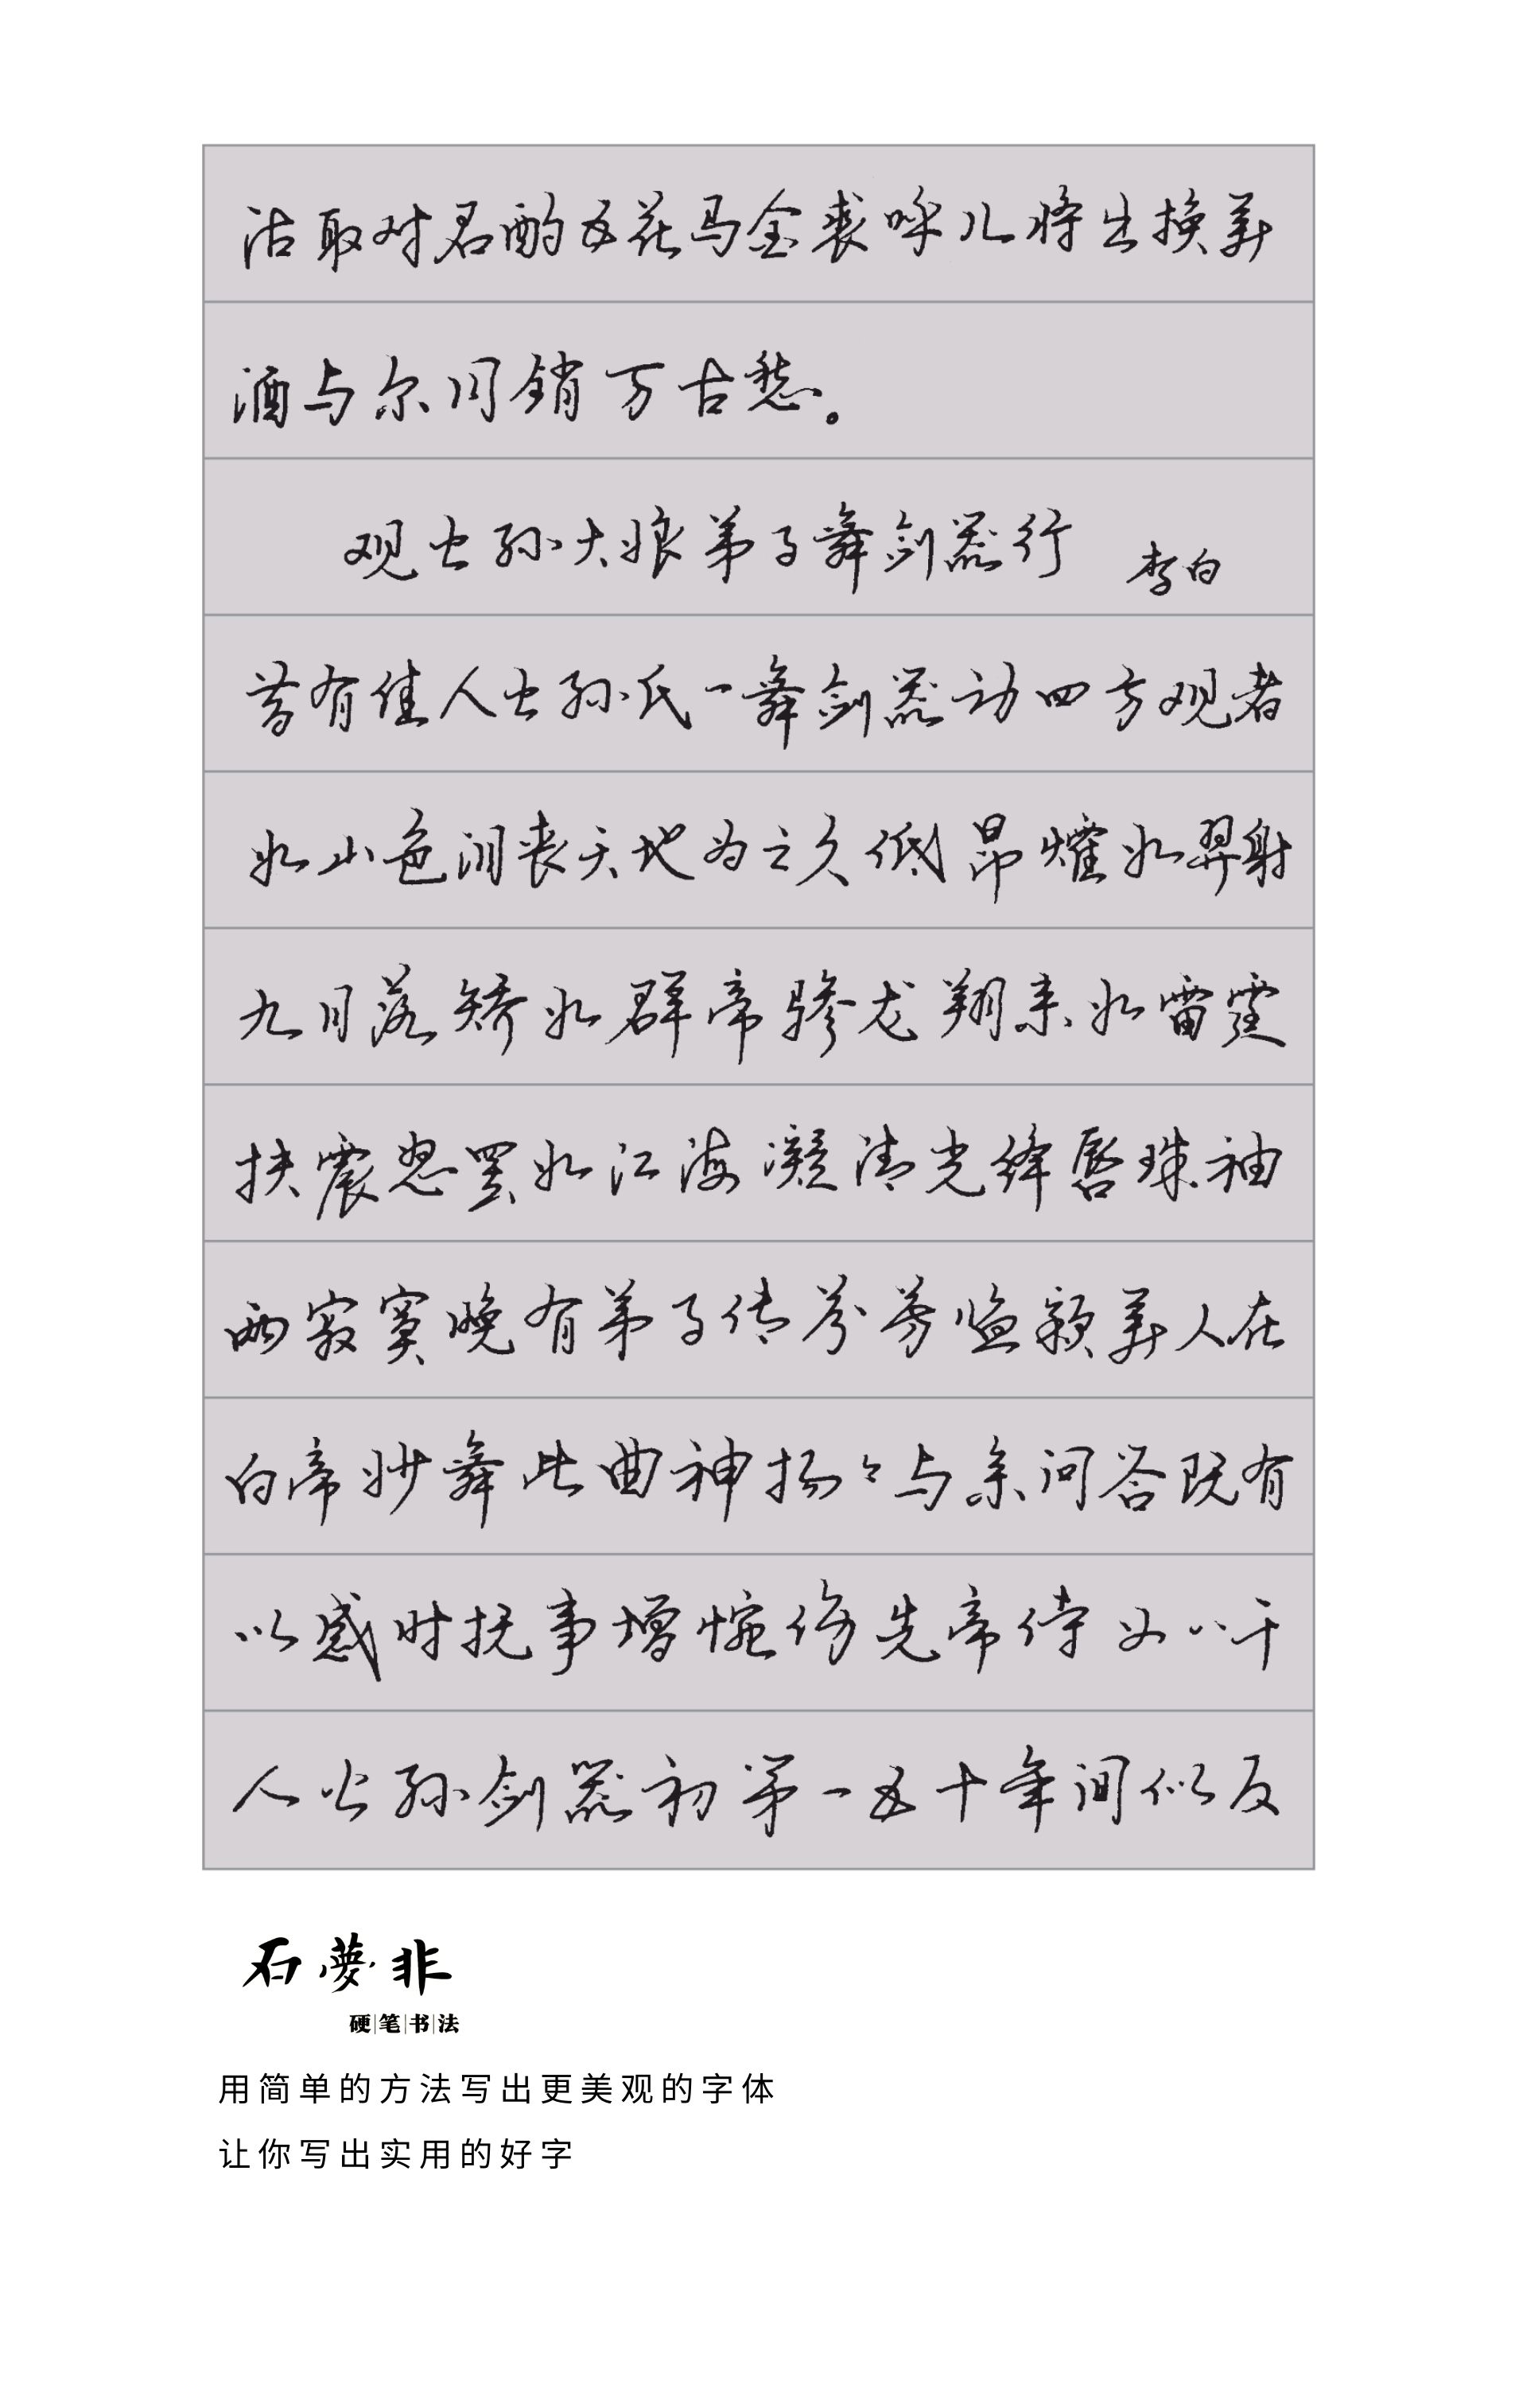 沽取对君酌五花马金裘呼儿将出换美
酒与尔同销万古愁。
观公孙大娘弟子舞剑器行 李白
昔有佳人公孙氏一舞剑器动四方观者
如山色沮丧天地为之久低昂㸌如羿射
九日落矫如群帝骖龙翔来如雷霆
扶震怒罢如江海凝清光绛唇珠袖
两寂寞晚有弟子传芬芳临颍美人在
白帝妙舞此曲神扬々与余问答既有
以感时抚事增惋伤先帝侍女八千
人公孙剑器初第一五十年间似反
石夢非
硬|笔|书|法
用简单的方法写出更美观的字体
让你写出实用的好字